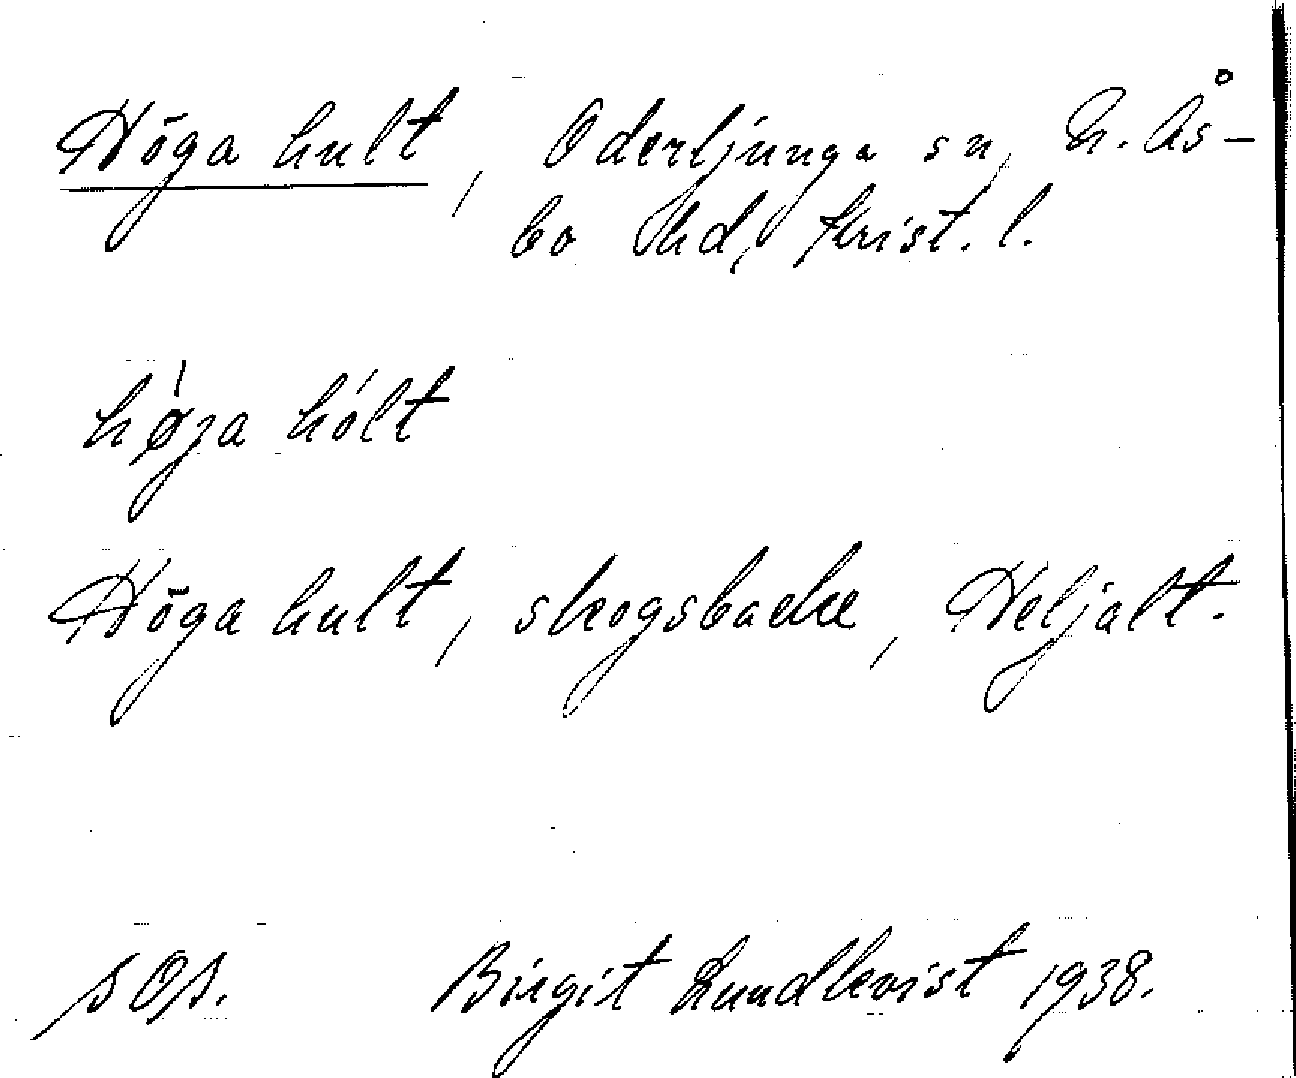 Höga hult, Oderljunga sn, N. Ås-
bo hd, Krist. l.
hø̀ja hólt
Höga hult, skogsbacke, Heljalt.
SOS. Birgit Lundkvist 1938.